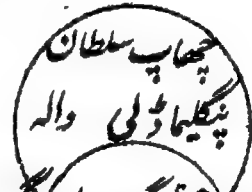 چھاپ سلطان
پنگلیما ڈلی والہ